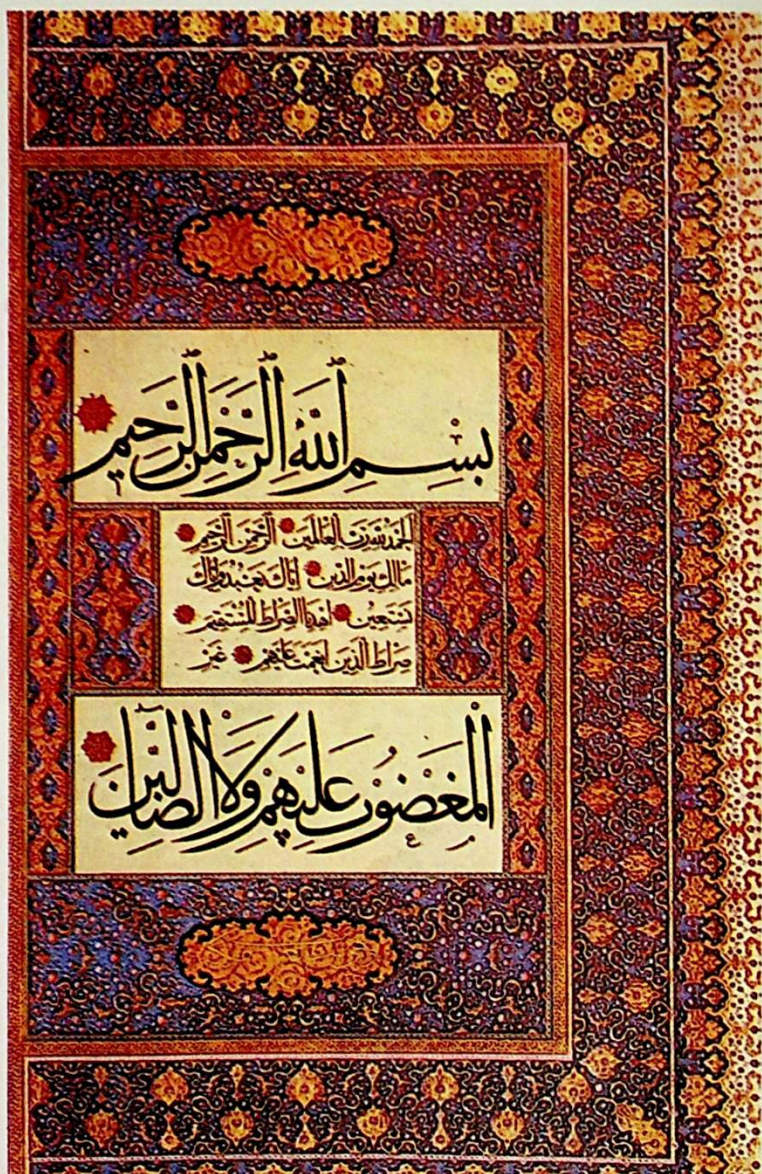 بِسْمِ ٱللَّهِ ٱلرَّحْمَٰنِ ٱلرَّحِيمِ
الحمد لله رب العالمين الرحمن الرحيم
مالك يوم الدين إياك نعبد وإياك
نستعين اهدنا الصراط المستقيم
صراط الذين أنعمت عليهم غير
الْمَغْضُوبِ عَلَيْهِمْ وَلَا الضَّالِّينَ